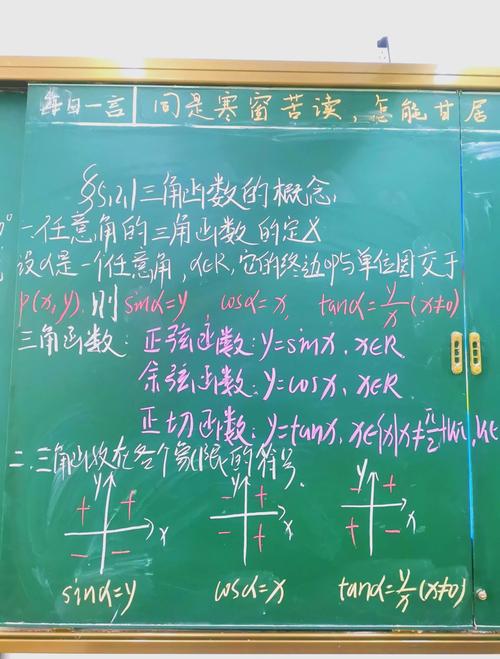 每日一言 同是寒窗苦读，怎能甘居
§5.2.1三角函数的概念
一任意角的三角函数的定义
设α是一个任意角，α∈R，它的终边OP与单位圆交于
P(x,y).则 sinα=y, cosα=x, tanα=y/x(x≠0)
三角函数：正弦函数：y=sinx，x∈R
余弦函数：y=cosx，x∈R
正切函数：y=tanx，x∈{x|x≠π/2+kπ,k∈
二.三角函数在各个象限的符号.
y y y
+ + - + - +
x x x
- - - + + -
sinα=y cosα=x tanα=y/x(x≠0)